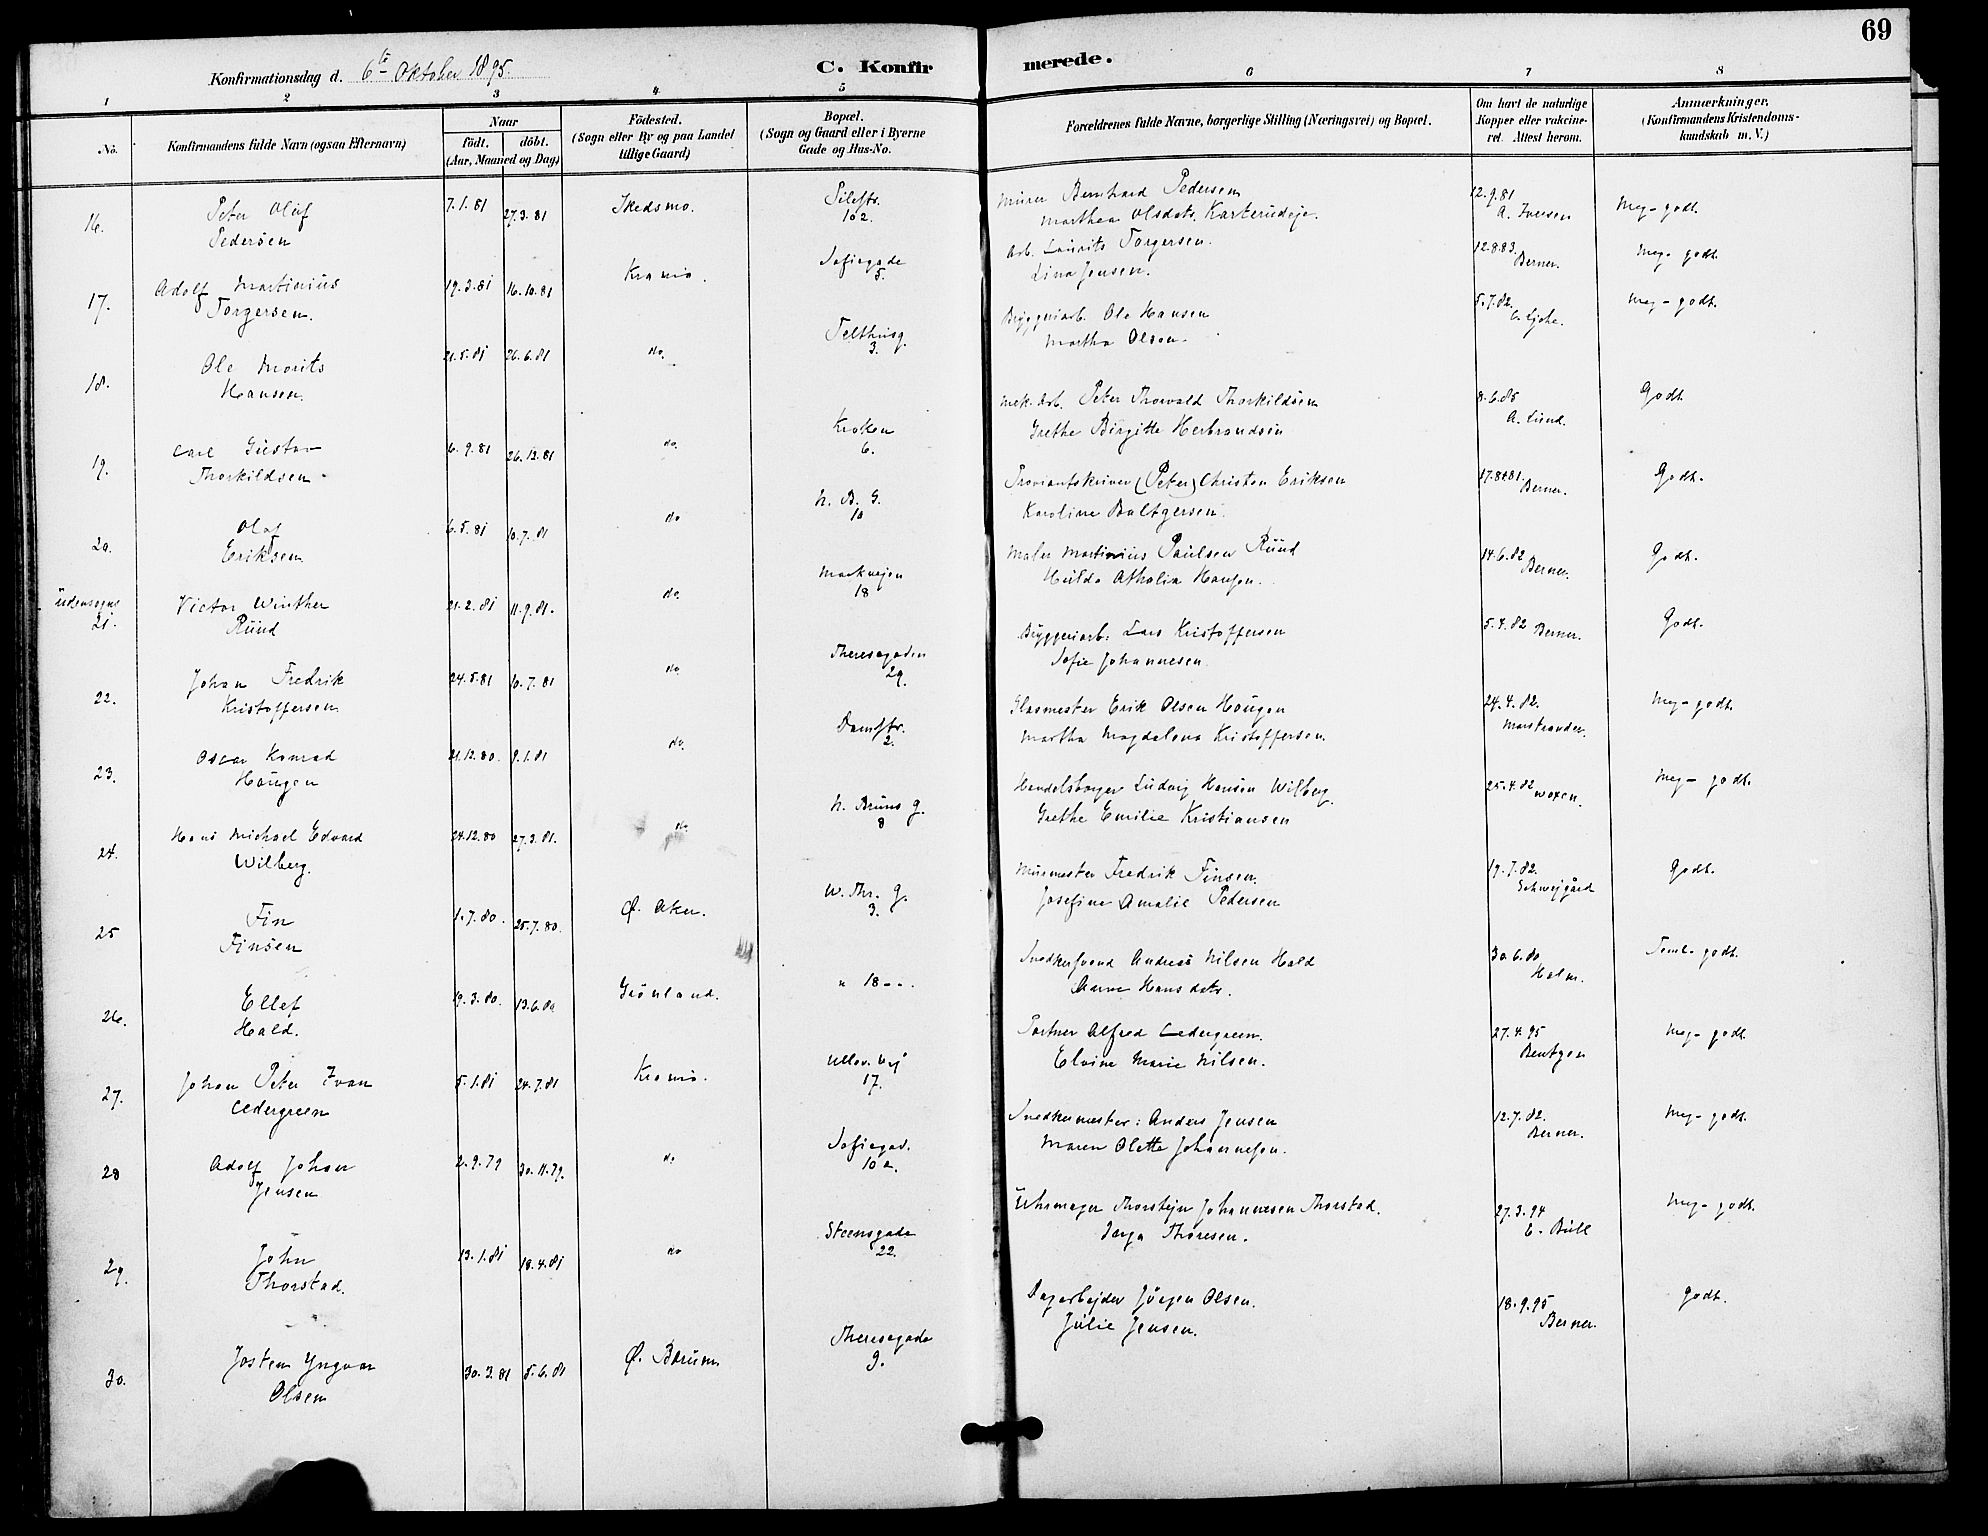 69
Konfirmationsdag d. 6te Oktober 1895.
C. Konfirmerede.
1 2 3 4 5 6 7 8
No.
Konfirmandens fulde Navn (ogsaa Efternavn)
Naar
født. döbt.
(Aar, Maaned og Dag)
Födested.
(Sogn eller By og paa Landet
tillige Gaard)
Bopæl.
(Sogn og Gaard eller i Byerne
Gade og Hus-No.
Forældrenes fulde Navne, borgerlige Stilling (Næringsvei) og Bopæl.
Om havt de naturlige
Kopper eller vakcine-
ret. Attest herom.
Anmærkninger.
(Konfirmandens Kristendoms-
kundskab m. V.)
16. Peter Olaf
Pedersen
7.1.81 27.3.81 Skedsmo. Pilestr.
102.
Murer Bernhard Pedersen
Marthea Olsdatr.
12.9.81
A. Iversen
Meg. godt.
17. Adolf Martinius
Torgersen.
19.3.81 16.10.81 Krania. Sofiegade
5.
Arb. Laurits Torgersen.
Lina Jensen.
12.8.83.
Berner.
Meg. godt.
18. Ole Morits
Hansen.
21.5.81 26.6.81 do. Telthusg.
3.
Bryggeriarb. Ole Hansen
Martha Olsen.
5.7.82.
Meg. godt.
19. Carl Gustav
Thorkildsen
6.9.81 26.12.81 do. Kroken
6.
mek. Arb. Peter Thorvald Thorkildsen
Grethe Birgitte Herbrandsen
8.6.85
A. Lund.
Godt.
20. Olaf
Eriksen.
6.5.81 10.7.81 do N. B. G.
10
Proviantskriver (Peter) Christen Eriksen
Karoline Baltzersen
Berner.
Godt.
Udensogns
21. Victor Winther
Ruud
21.2.81 11.9.81. do. Markvejen
18
Maler Martinius Paulsen Ruud
Hulda Athalia Hansen.
14.6.82
Berner.
Godt.
22. Johan Fredrik
Kristoffersen.
24.5.81 10.7.81 do. Theresegaden
29.
Bryggeriarb. Lars Kristoffersen
Sofie Johannesen.
5.4.82 Berner.
Godt.
23. Oscar Konrad
Haugen
21.12.80. 9.1.81 do. Damstr.
2.
Glasmester Erik Olsen Haugen
Martha Magdalena Kristoffersen.
24.4.82.
Marstrander.
Meg. godt.
24. Hans Michael Edvard
Wilberg.
24.12.80 27.3.81. do. N. Bruns g.
8
Handelsborger Ludvig Hansen Wilberg.
Grethe Emilie Kristiansen
25.4.82 Woxen.
Meg. godt.
25 Fin
Finsen
1.7.80. 25.7.80. Ø. Aker. W. Thr. G.
3.
Murmester Fredrik Finsen.
Josefine Amalie Pedersen
19.7.82.
Schwejgård
Godt.
26. Ellef
Hald.
19.3.80. 13.6.80 Grönland. " 18
Snedkersvend Andreas Nilsen Hald
Anne Hansdatr.
30.6.80
Holm.
Teml. godt.
27. Johan Peter Ivan
Cedergreen
5.1.81 24.7.81 Krania. Ullev. Vej
17.
Portner Alfred Cedergreen.
Elvine Marie Nilsen.
27.4.95
Bentzen
Meg. godt.
28 Adolf Johan
Jensen
2.9.79 30.11.79. do Sofiegad.
10 a.
Snedkermester: Anders Jensen
Maren Olette Johannesen.
12.7.82.
Berner.
Meg. godt.
29. John
Thorstad.
13.1.81 18.4.81 do Steensgade
22.
Uhrmager Thorstejn Johannesen Thorstad.
Thoresen.
27.3.94
E. Bull
Meg. godt.
30. Josten Yngvar
Olsen
30.3.81 5.6.81 Ø. Bærum Theresegade
9.
Dagarbejder Jörgen Olsen.
Julie Jensen.
18.9.95
Berner.
Godt.